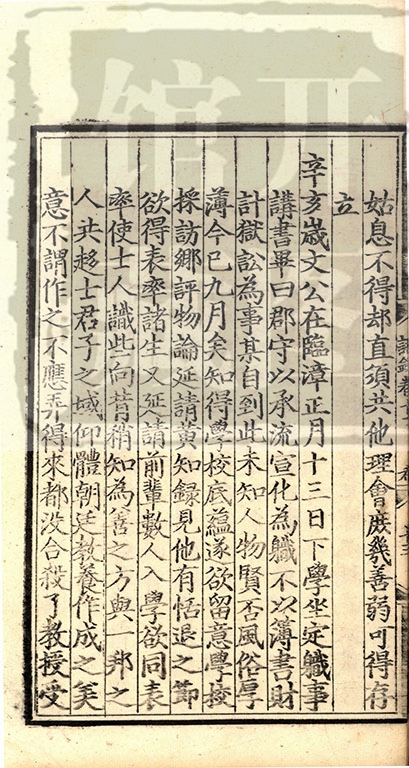 姑息不得却直須共他理會庶幾善弱可得存
立
辛亥歲文公在臨漳正月十三日下學坐定職事
講書畢曰郡守以承流宣化為職不以簿書財
計獄訟為事某自到此未知人物賢否風俗厚
薄今已九月矣知得學校底蘊遂欲留意學校
採訪鄉評物論延請黃知録見他有恬退之節
欲得表率諸生又延請前輩數人入學欲同表
率使士人識些向背稍知為善之方與一邦之
人共趍士君子之域仰體朝廷教養作成之美
意不謂作之不應弄得來都没合殺了教授受